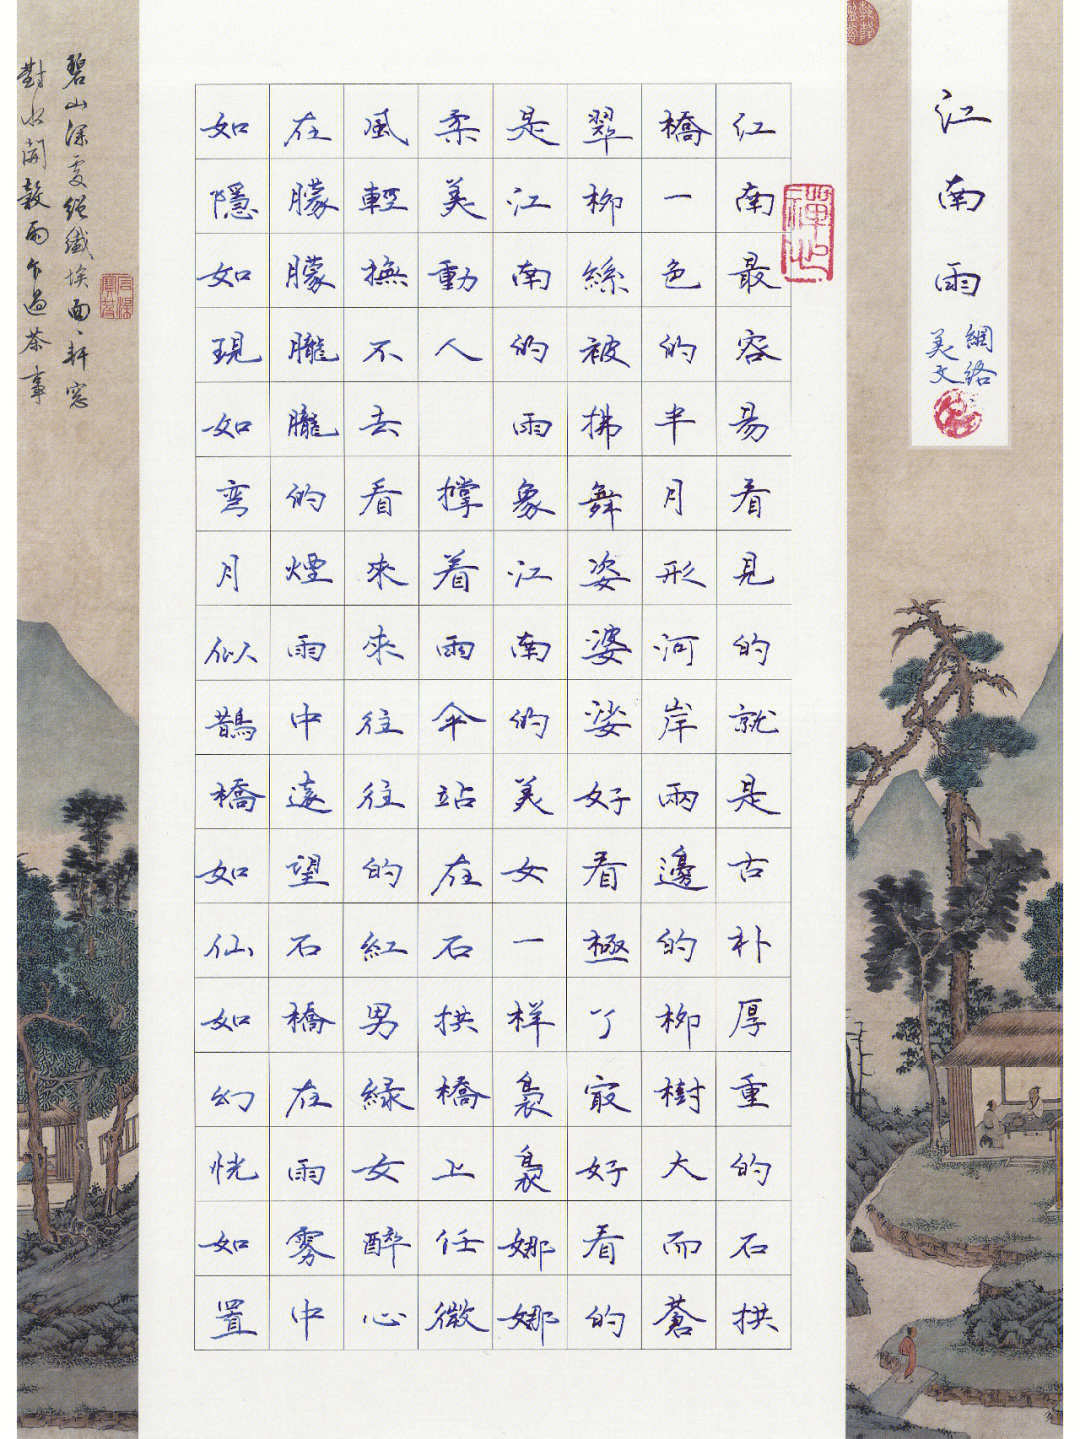 江南雨
網絡
美文
江南最容易看見的就是古朴厚重的石拱
橋一色的半月形河岸兩邊的柳樹大而蒼
翠柳絲被拂舞姿婆娑好看極了最好看的
是江南的雨象江南的美女一样裊裊娜娜
柔美動人 撑着雨伞站在石拱橋上任微
風輕撫不去看來來往往的紅男綠女醉心
在朦朦朧朧的煙雨中遠望石橋在雨雾中
如隱如現如弯月似鵲橋如仙如幻恍如置
碧山深處絕纖埃面面軒窓
對水開穀雨乍過茶事